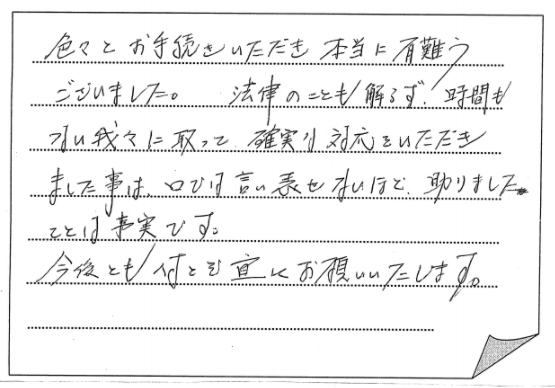 色々とお手続きいただき本当に有難う
ございました。 法律のことも解らず、時間も
ない我々に取って、確実な対応をいただき
ました事は、口では言い表せないほど、助りました
ことは事実です。
今後とも何とぞ宜しくお願いいたします。